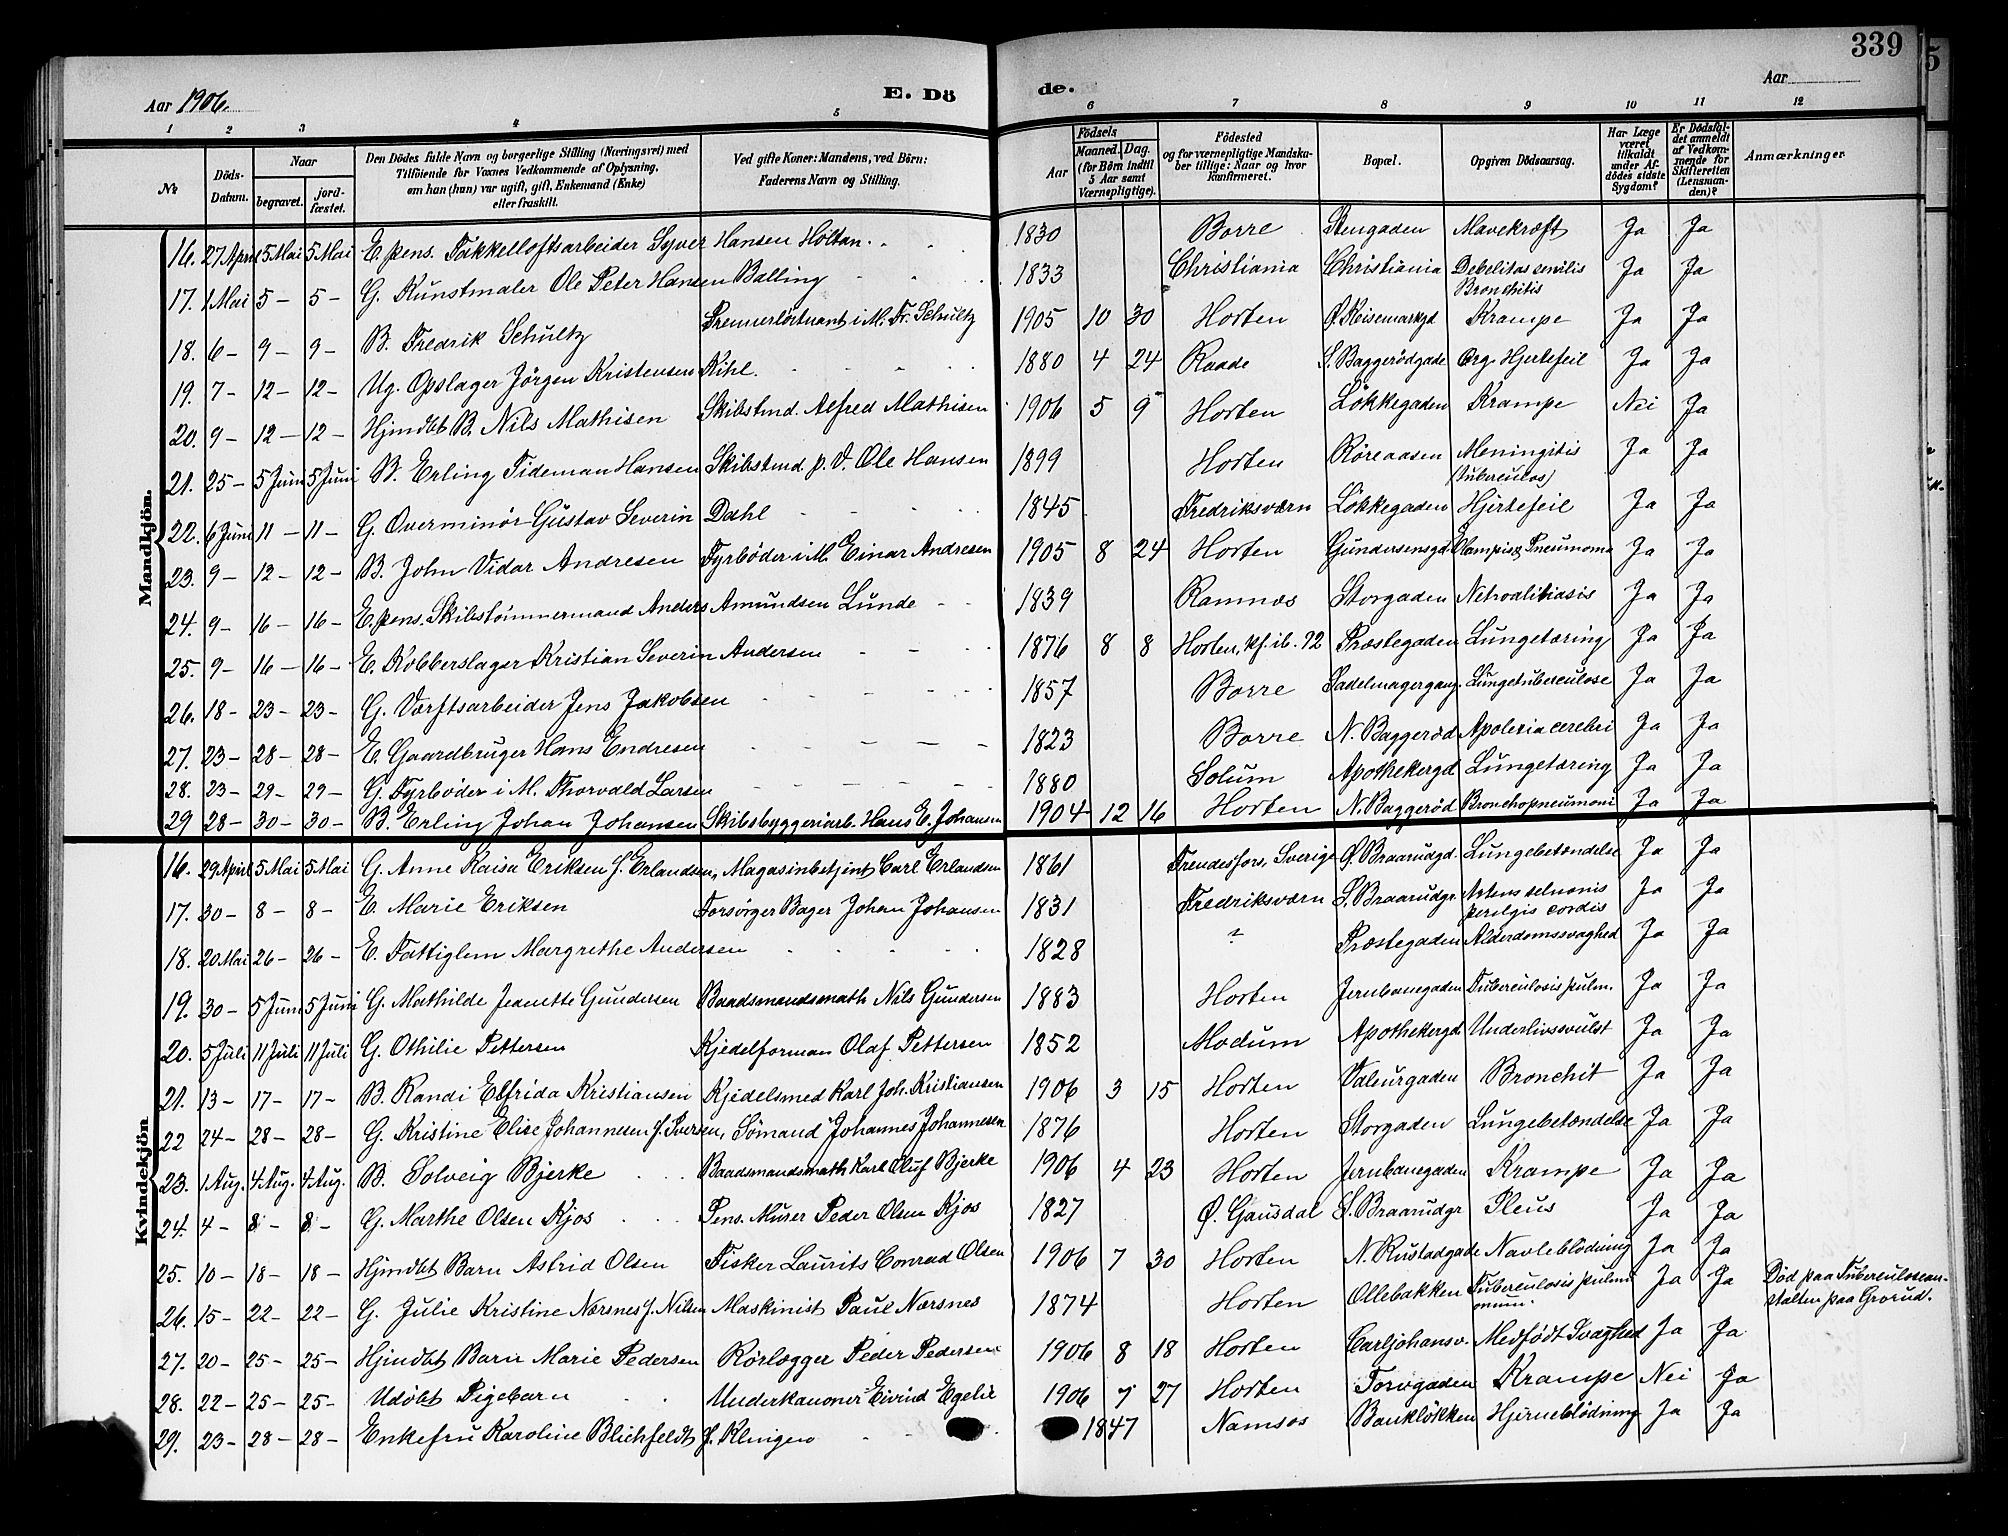 339
Aar 1906.
E. Dö de.
Aar
1 2 3 4 5 6 7 8 9 10 11 12
№
Döds-Datum.
Naar begravet. jord-fæstet.
Den Dödes fulde Navn og borgerlige Stilling (Næringsvei) med Tilföiende for Voxnes Vedkommende af Oplysning, om han (hun) var ugift, gift, Enkemand (Enke) eller fraskilt.
Ved gifte Koner: Mandens, ved Börn: Faderens Navn og Stilling.
Födsels Aar Maaned. Dag. (for Börn indtil 5 Aar samt Værnepligtige).
Födested og for værnepligtige Mandskaber tillige: Naar og hvor konfirmeret.
Bopæl.
Opgiven Dödsaarsag.
Har Læge været tilkaldt under Afdödes sidste Sygdom?
Er Dödsfaldet anmeldt af Vedkommende for Skifteretten (Lensmanden)?
Anmærkninger
Mandkjön.
16. 27 April 5 Mai 5 Mai E. pens. Takkelloftsarbeider Syver Hansen Holtan. 1830 Borre Stengaden Mavekræft Ja Ja
17. 1 Mai 5 – 5 – G. Kunstmaler Ole Peter Hansen Balling 1833 Christiania Christiania Debelitas senilis Bronchitis Ja Ja
18. 6 – 9 – 9 – B. Fredrik Schultz Premierlöitnant i M. Fr. Schultz 1905 10 30 Horten Ø. Keisemarkgd Krampe Ja Ja
19. 7 – 12 – 12 – Ug. Opslager Jörgen Kristensen Kihl. 1880 4 24 Raade S. Baggerödgade Org. Hjertefeil Ja Ja
20. 9 – 12 – 12 – Hjmdbt B. Nils Mathisen Skibstmd. Alfred Mathisen 1906 5 9 Horten Lökkegaden Krampe Nei Ja
21. 25 – 5 Juni 5 Juni B. Erling Tideman Hansen Skibstmd p. V. Ole Hansen 1899 Horten Röreaasen Meningitis (tuberculos) Ja Ja
22. 6 Juni 11 – 11 – G. Overminör Gustav Severin Dahl 1845 Fredriksværn Lökkegaden Hjertefeil Ja Ja
23. 9 – 12 – 12 – B. John Vidar Andresen Fyrböder i M. Einar Andresen 1905 8 24 Horten Gundersensgd. Pneumoni Ja Ja
24. 9 – 16 – 16 – E. pens. Skibstömmermand Anders Amundsen Lunde 1839 Ramnæs Storgaden Ja Ja
25. 9 – 16 – 16 – E. Kobberslager Kristian Severin Andersen 1876 8 8 Horten, kf. ib. 92 Præstegaden Lungetæring Ja Ja
26. 18 – 23 – 23 – G. Værftsarbeider Jens Jakobsen 1857 Borre Sadelmagergang. Lungetuberculose Ja Ja
27. 23 – 28 – 28 – E. Gaardbruger Hans Endresen 1823 Borre N. Baggeröd Apolexia cerebri Ja Ja
28. 23 – 29 – 29 – G. Fyrböder i M. Thorvald Larsen 1880 Solum Apothekergd Lungetæring Ja Ja
29 28 – 30 – 30 – B. Erling Johan Johansen Skibsbyggeriarb. Hans E. Johansen 1904 12 16 Horten N. Baggeröd Bronchopneumoni Ja Ja
Kvindekjön
16. 29 April 5 Mai 5 Mai G. Anne Kaisa Eriksen f. Erlandsen, Magasinbetjent Carl Erlandsen 1861 Frendesfors, Sverige Ø. Braarudgd. Lungebetændelse Ja Ja
17. 30 – 8 – 8 – E. Marie Eriksen Forsörger Bager Johan Johansen 1831 Fredriksværn S. Braarudgr. cordis Ja Ja
18. 20 Mai 26 – 26 – E. Fattiglem Margrethe Andersen 1828 ? Præstegaden Alderdomssvaghed Ja Ja
19. 30 – 5 Juni 5 Juni G. Mathilde Jeanette Gundersen Baadsmandsmath Nils Gundersen 1883 Horten Jernbanegaden Tuberculosis pulm. Ja Ja
20. 5 Juli 11 Juli 11 Juli G. Othilie Pettersen Kjedelforman Olaf Pettersen 1852 Modum Apothekergd Underlivssvulst Ja Ja
21. 13 – 17 – 17 – B. Randi Elfrida Kristiansen Kjedelsmed Karl Joh. Kristiansen 1906 3 15 Horten Valeurgaden Bronchit Ja Ja
22 24 – 28 – 28 – G. Kristine Elise Johannesen f. Iversen, Sömand Johannes Johannesen 1876 Horten Storgaden Lungebetændelse Ja Ja
23. 1 Aug. 4 Aug. 4 Aug. B. Solveig Bjerke Baadsmandsmath Karl Oluf Bjerke 1906 4 23 Horten Jernbanegaden Krampe Ja Ja
24. 4 – 8 – 8 – G. Marthe Olsen Kjos Pens. Murer Peder Olsen Kjos 1827 Ø. Gausdal S. Braarudgr Ileus Ja Ja
25. 10 – 18 – 18 – Hjmdbt Barn Astrid Olsen Fisker Laurits Conrad Olsen 1906 7 30 Horten N. Rustadgade Navleblödning Ja Ja
26. 15 – 22 – 22 – G. Julie Kristine Næsnes f. Nilsen Maskinist Paul Næsnes 1874 Horten Ollebakken Tuberculosis pulmonum. Ja Ja Död paa Tuberculoseanstalten paa Grorud.
27. 20 – 25 – 25 – Hjmdbt Barn Marie Pedersen Rörlægger Peder Pedersen 1906 8 18 Horten Carljohansv. Medfödt Svaghed Ja Ja
28. 22 – 25 – 25 – Udöbt Pigebarn Underkanoner Eivind Egelie 1906 7 27 Horten Torvgaden Krampe Nei Ja
29. 23 – 28 – 28 – Enkefru Karoline Blichfeldt f. Klingen 1847 Namsos Bankløkken Hjerneblödning Ja Ja